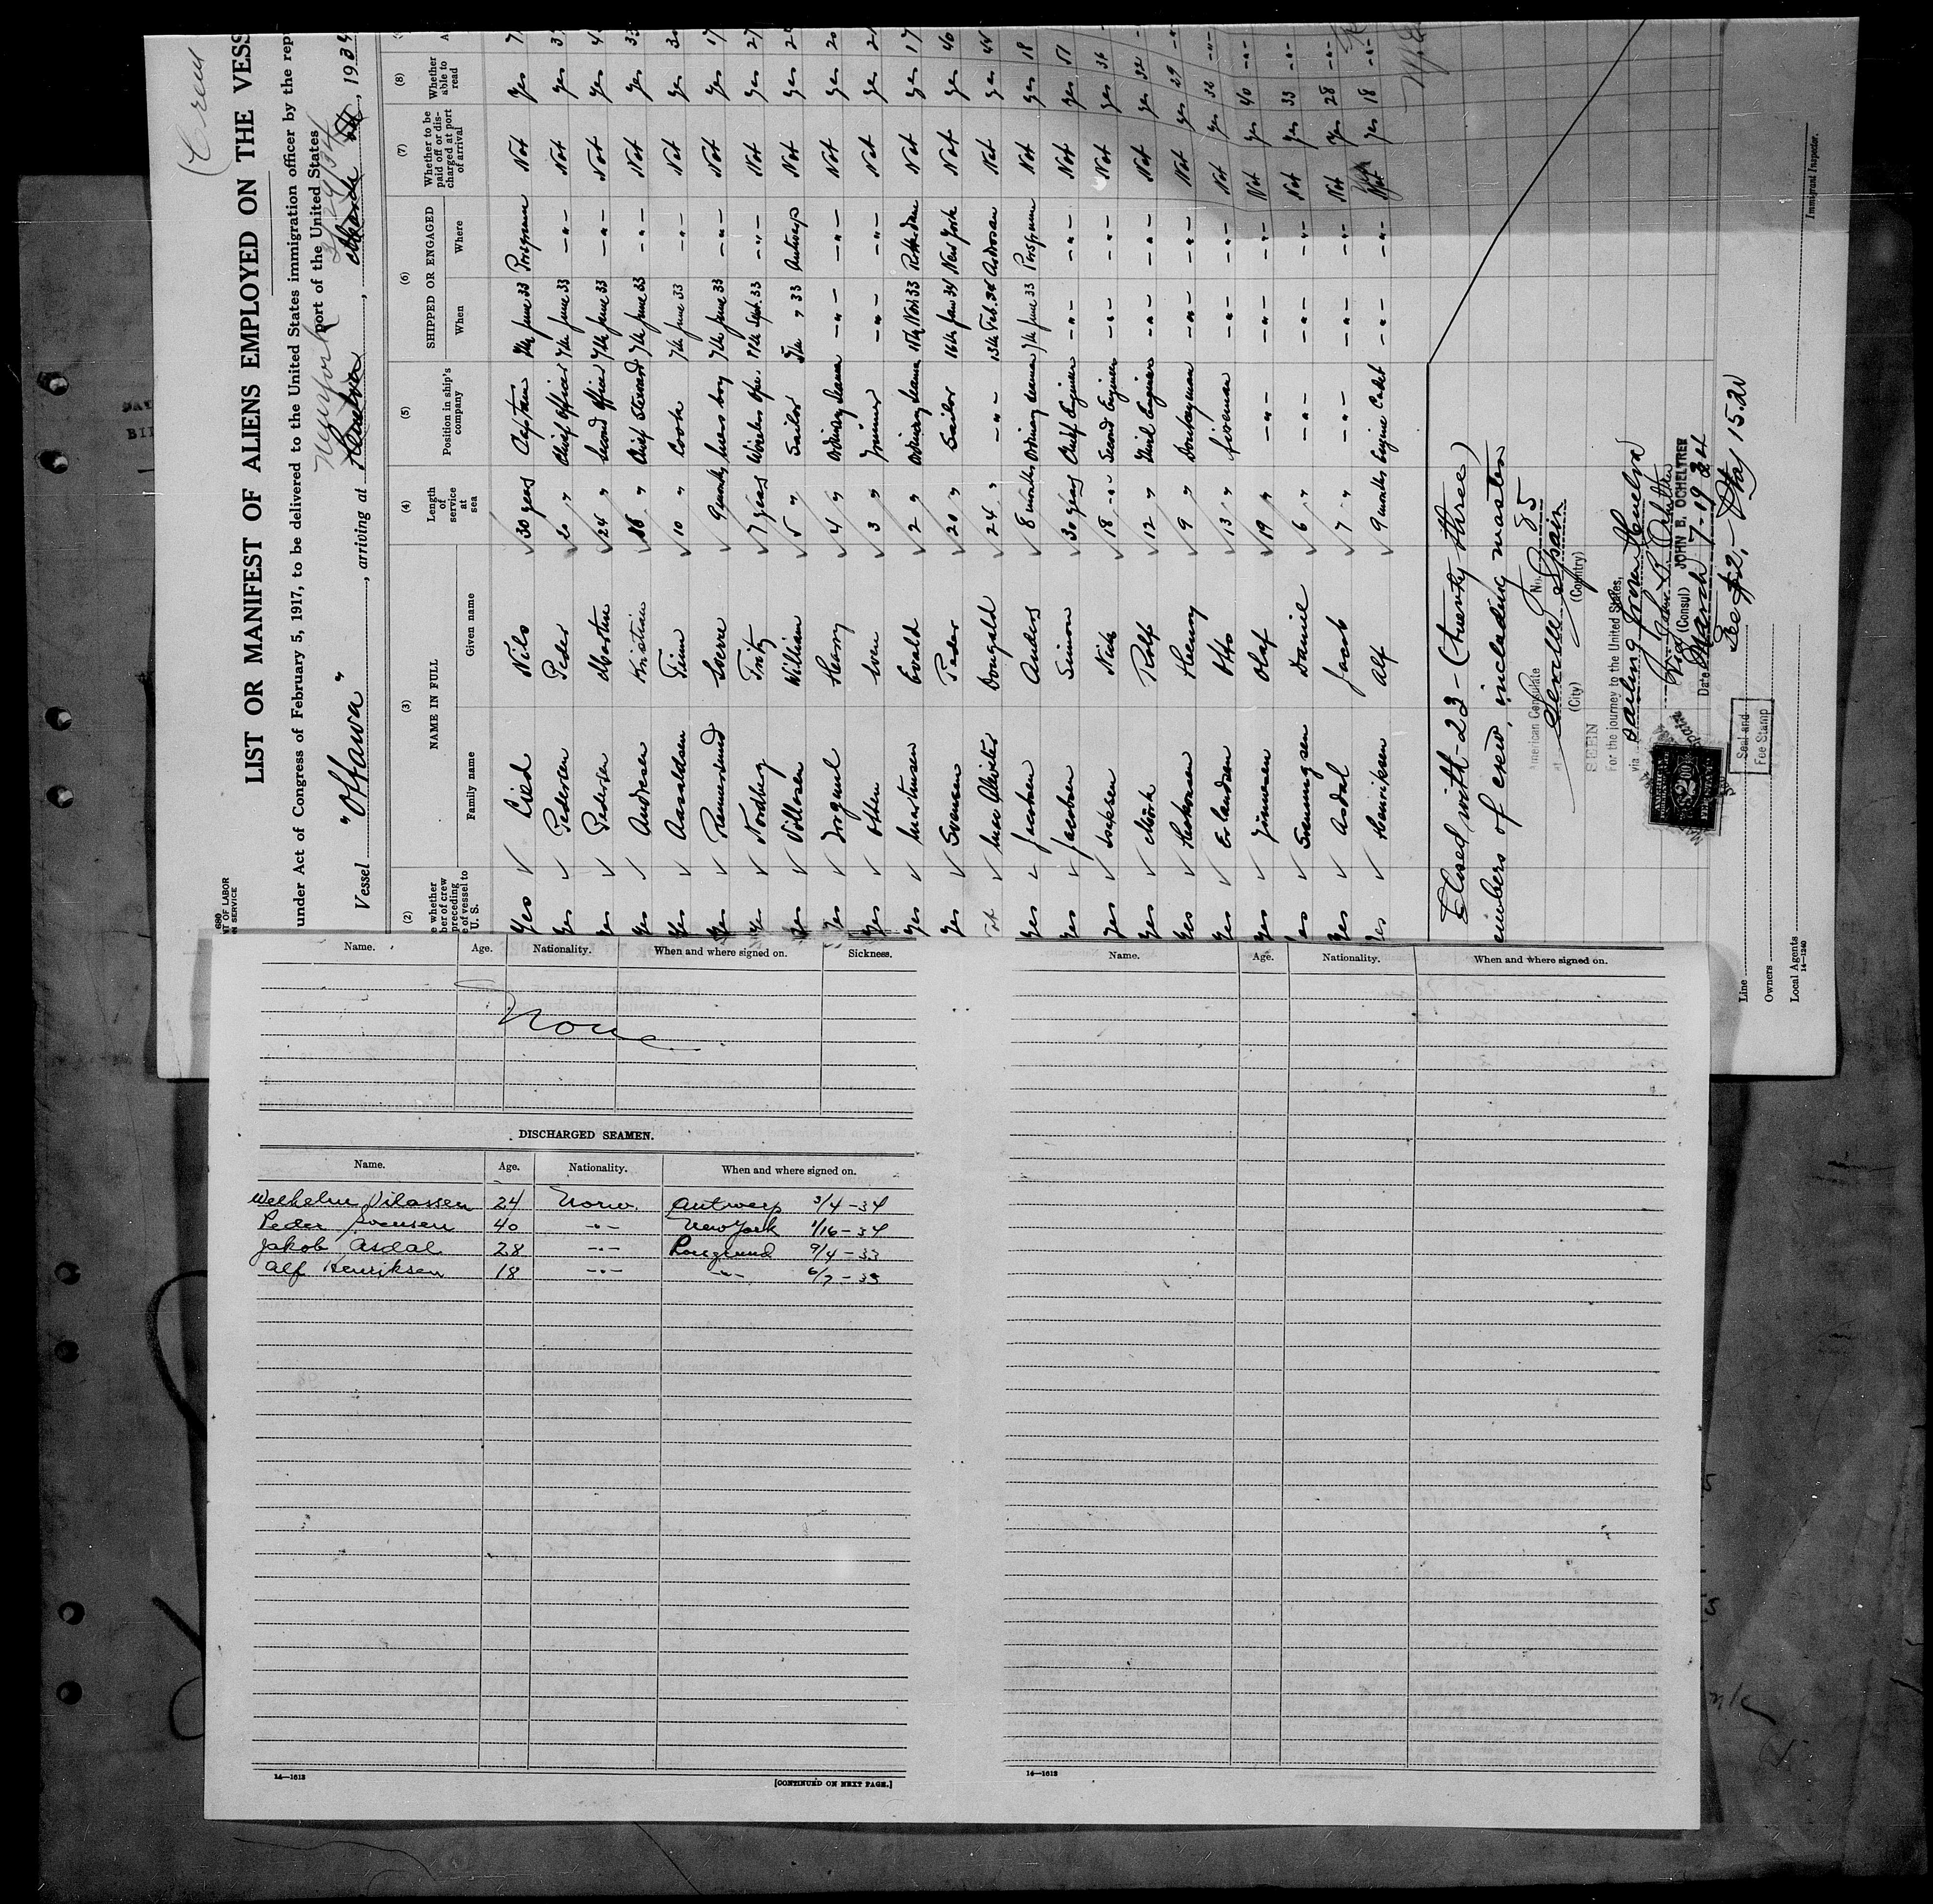 LIST OR MANIFEST OF ALIENS EMPLOYED ON THE VESS
under Act of Congress of February 5, 1917, to be delivered to the United States immigration officer by the rep
port of the United States
Vessel "Ottawa", arriving at Newyork, 1934
(2) (3) (4) (5) (6) (7) (8)
NAME IN FULL Length of service at sea Position in ship's company SHIPPED OR ENGAGED Whether to be paid off or discharged at port of arrival Whether able to read
Family name Given name When Where
Yes Lied Nils 30 years Captain 7th June 33 Porsgrunn Not Yes
Yes Pedersen Peder 20 " Chief Officer 7th June 33 -"- Not Yes
Yes Pedersen Morten 24 " Second Officer 7th June 33 -"- Not Yes
Yes Andresen Kristian 16 " Chief Steward 7th June 33 -"- Not Yes
Yes Aanaldsen Finn 10 " Cook 7th June 33 -"- Not Yes
Yes Sverre 9 months mess boy 7th June 33 -"- Not Yes 17
Yes Nordberg Fritz 7 years Wireless Oper. Sept. 33 -"- Not Yes 27
Yes Villassen William 5 " Sailor 5th " 33 Antwerp Not Yes
Yes Henry 4 " Ordinary seaman -"- -"- Not Yes 20
Yes Otten Sven 3 " Trimmer -"- -"- Not Yes
Yes Martinsen Evald 2 " Ordinary seaman 15th Nov 33 Rotterdam Not Yes 17
Yes Svensen Peder 20 " Sailor 16th Jan 34 New York Not Yes 40
Mac Alister Dougald 24 " -"- 13th Feb. 34 Ardrossan Not Yes 44
Yes Jacobsen Anders 8 months Ordinary seaman 7th June 33 Porsgrunn Not Yes 18
Yes Jacobsen Simon 30 years Chief Engineer -"- -"- Not Yes 51
Yes Isaksen Nick 18 -"- Second Engineer -"- -"- Not Yes 36
Yes Mörk Rolf 12 " Third Engineer -"- -"- Not Yes 32
Yes Henry 9 " Donkeyman -"- -"- Not Yes 29
Yes Erlandsen Otto 13 " fireman -"- -"- Not Yes 32
Yes Olaf 19 " -"- -"- -"- Not Yes 40
Yes Svenningsen Daniel 6 " -"- -"- -"- Not Yes 33
Yes Asdal Jacob 7 " -"- -"- -"- Not Yes 28
Yes Henriksen Alf 9 months Engine Cadet -"- -"- Not Yes 18
Closed with - 23 - (twenty three)
members of crew, including master
American Consulate No. 85
at Seville Spain
(City) (Country)
SEEN
For the journey to the United States,
via sailing from Huelva
(Consul) JOHN B. OCHELTREE
Date March 7-1934
Fee $2.- Ptas 15.20
Seal and Fee Stamp
Line
Owners
Local Agents
14-1240
Immigrant Inspector.
Name. Age. Nationality. When and where signed on. Sickness.
None
DISCHARGED SEAMEN.
Name. Age. Nationality. When and where signed on.
Welhelm Vilassen 24 Norw. Antwerp 3/4-34
Peder Svensen 40 -"- New York 1/16-34
Jakob Asdal 28 -"- Porsgrund 9/4-33
Alf Henriksen 18 -"- -"- 6/7-33
14—1613
[CONTINUED ON NEXT PAGE.]
Name. Age. Nationality. When and where signed on.
14—1613